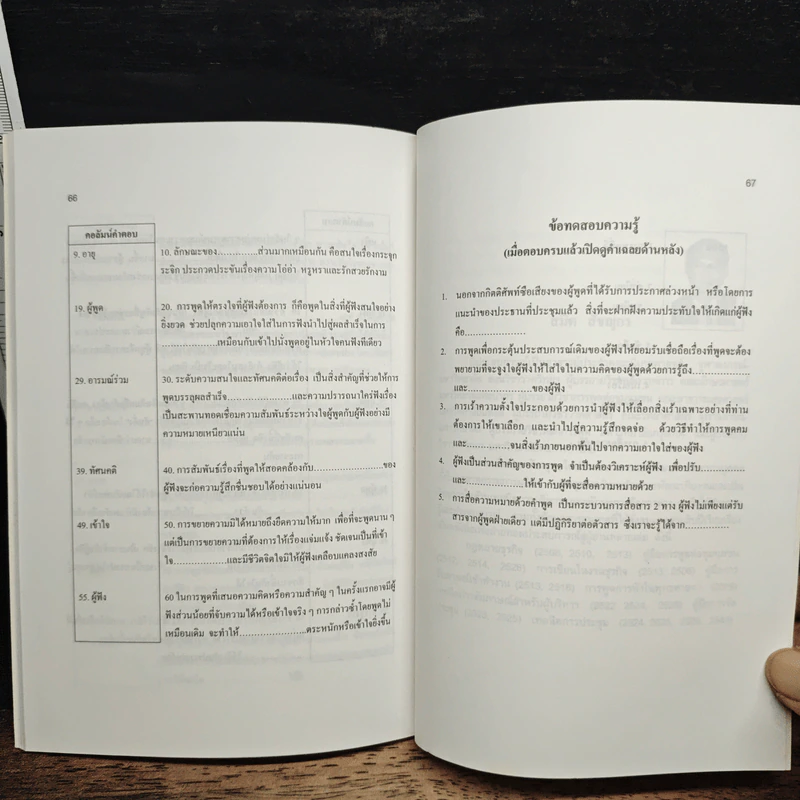 66
คอลัมน์คำตอบ
9. อายุ
10. ลักษณะของ..............ส่วนมากเหมือนกัน คือสนใจเรื่องกระจุก
กระจิก ประกวดประชันเรื่องความโอ่อ่า หรูหราและรักสวยรักงาม
19. ผู้พูด
20. การพูดให้ตรงใจที่ผู้ฟังต้องการ ก็คือพูดในสิ่งที่ผู้ฟังสนใจอย่าง
ยิ่งยวด ช่วยปลุกความเอาใจใส่ในการฟังนำไปสู่ผลสำเร็จในการ
..................เหมือนกับเข้าไปนั่งพูดอยู่ในหัวใจคนฟังทีเดียว
29. อารมณ์ร่วม
30. ระดับความสนใจและทัศนคติต่อเรื่อง เป็นสิ่งสำคัญที่ช่วยให้การ
พูดบรรลุผลสำเร็จ....................และความปรารถนาใคร่ฟังเรื่อง
เป็นสะพานทอดเชื่อมความสัมพันธ์ระหว่างใจผู้พูดกับผู้ฟังอย่างมี
ความหมายเหนียวแน่น
39. ทัศนคติ
40. การสัมพันธ์เรื่องที่พูดให้สอดคล้องกับ........................ของ
ผู้ฟังจะก่อความรู้สึกชื่นชอบได้อย่างแน่นอน
49. เข้าใจ
50. การขยายความมิได้หมายถึงยืดความให้มาก เพื่อที่จะพูดนาน ๆ
แต่เป็นการขยายความที่ต้องการให้เรื่องแจ่มแจ้ง ชัดเจนเป็นที่เข้า
ใจ....................และมีชีวิตจิตใจมิให้ผู้ฟังเคลือบแคลงสงสัย
55. ผู้ฟัง
60 ในการพูดที่เสนอความคิดหรือความสำคัญ ๆ ในครั้งแรกอาจมีผู้
ฟังส่วนน้อยที่จับความได้หรือเข้าใจจริง ๆ การกล่าวซ้ำโดยพูดไม่
เหมือนเดิม จะทำให้......................ตระหนักหรือเข้าใจยิ่งขึ้น
67
ข้อทดสอบความรู้
(เมื่อตอบครบแล้วเปิดดูคำเฉลยด้านหลัง)
1. นอกจากกิตติศัพท์ชื่อเสียงของผู้พูดที่ได้รับการประกาศล่วงหน้า หรือโดยการ
แนะนำของประธานที่ประชุมแล้ว สิ่งที่จะฝากฝังความประทับใจให้เกิดแก่ผู้ฟัง
คือ....................
2. การพูดเพื่อกระตุ้นประสบการณ์เดิมของผู้ฟังให้ยอมรับเชื่อถือเรื่องที่พูดจะต้อง
พยายามที่จะจูงใจผู้ฟังให้ใส่ใจในความคิดของผู้พูดด้วยการรู้ถึง....................
และ....................ของผู้ฟัง
3. การเร้าความตั้งใจประกอบด้วยการนำผู้ฟังให้เลือกสิ่งเร้าเฉพาะอย่างที่ท่าน
ต้องการให้เขาเลือก และนำไปสู่ความรู้สึกจดจ่อ ด้วยวิธีทำให้การพูดคม
และ..............จนสิ่งเร้าภายนอกพ้นไปจากความเอาใจใส่ของผู้ฟัง
4. ผู้ฟังเป็นส่วนสำคัญของการพูด จำเป็นต้องวิเคราะห์ผู้ฟัง เพื่อปรับ..............
และ....................ให้เข้ากับผู้ที่จะสื่อความหมายด้วย
5. การสื่อความหมายด้วยคำพูด เป็นกระบวนการสื่อสาร 2 ทาง ผู้ฟังไม่เพียงแต่รับ
สารจากผู้พูดฝ่ายเดียว แต่มีปฏิกิริยาต่อตัวสาร ซึ่งเราจะรู้ได้จาก..............